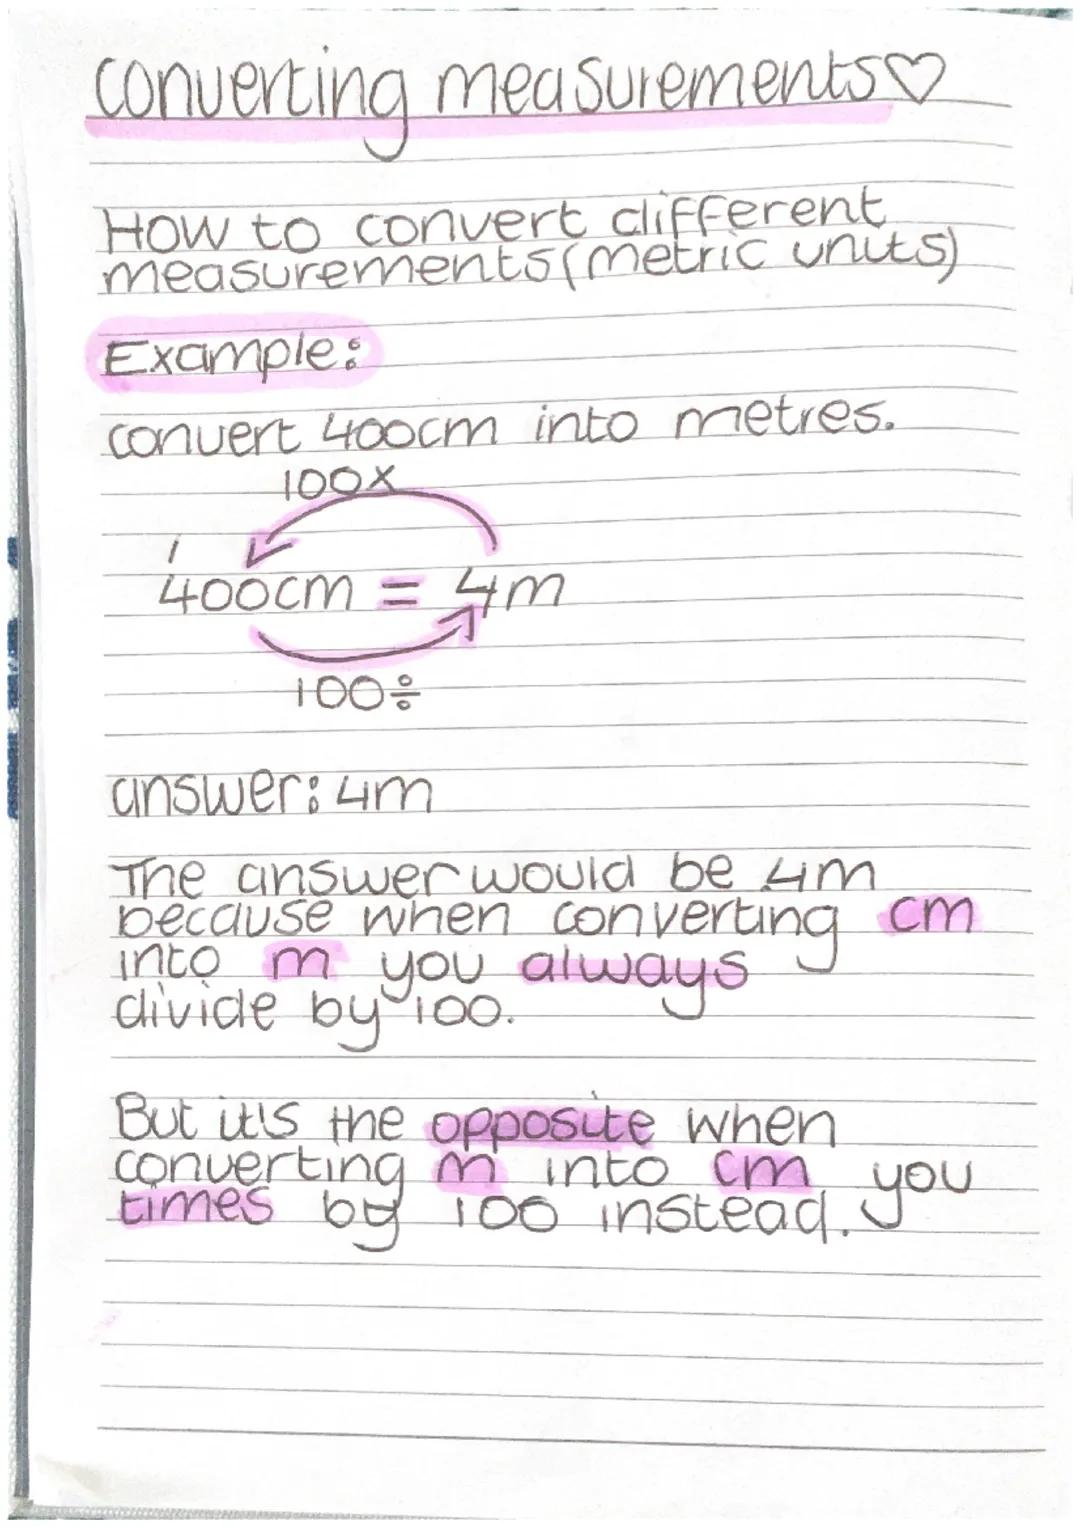 converting measurements♡
How to convert different
measurements (metric units)
Example:
convert 400cm into metres.
100×
400cm = 4m
100÷
answer: 4m
The answer would be 4m
because when converting cm
into m you always
divide by 100.
But it's the opposite when
converting m into cm you
times by 100 instead.